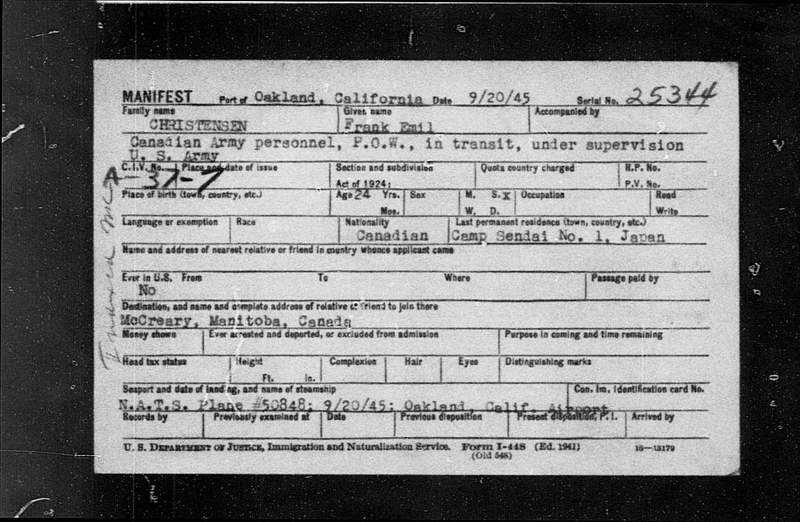 MANIFEST Port of Oakland, California Date 9/20/45 Serial No. 25344
Family name Given name Accompanied by
CHRISTENSEN Frank Emil
Canadian Army personnel, P.O.W., in transit, under supervision
U. S. Army
C.I.V. No. Place and date of issue Section and subdivision Quota country charged R.P. No.
Act of 1924: P.V. No.
A-37-7
Place of birth (town, country, etc.) Age 24 Yrs. Sex M. S. x Occupation Read
Mos. W. D. Write
Language or exemption Race Nationality Last permanent residence (town, country, etc.)
Canadian Camp Sendai No. 1, Japan
Name and address of nearest relative or friend in country whence applicant came
Ever in U.S. From To Where Passage paid by
No
Destination, and name and complete address of relative or friend to join there
McCreary, Manitoba, Canada
Money shown Ever arrested and deported, or excluded from admission Purpose in coming and time remaining
Head tax status Height Complexion Hair Eyes Distinguishing marks
Ft. In.
Seaport and date of landing, and name of steamship Con. Im. Identification card No.
N.A.T.S. Plane #50848; 9/20/45; Oakland, Calif. Airport
Records by Previously examined at Date Previous disposition Present disposition, P.I. Arrived by
U. S. DEPARTMENT OF JUSTICE, Immigration and Naturalization Service. Form I-448 (Ed. 1941) 16—13179
(Old 548)